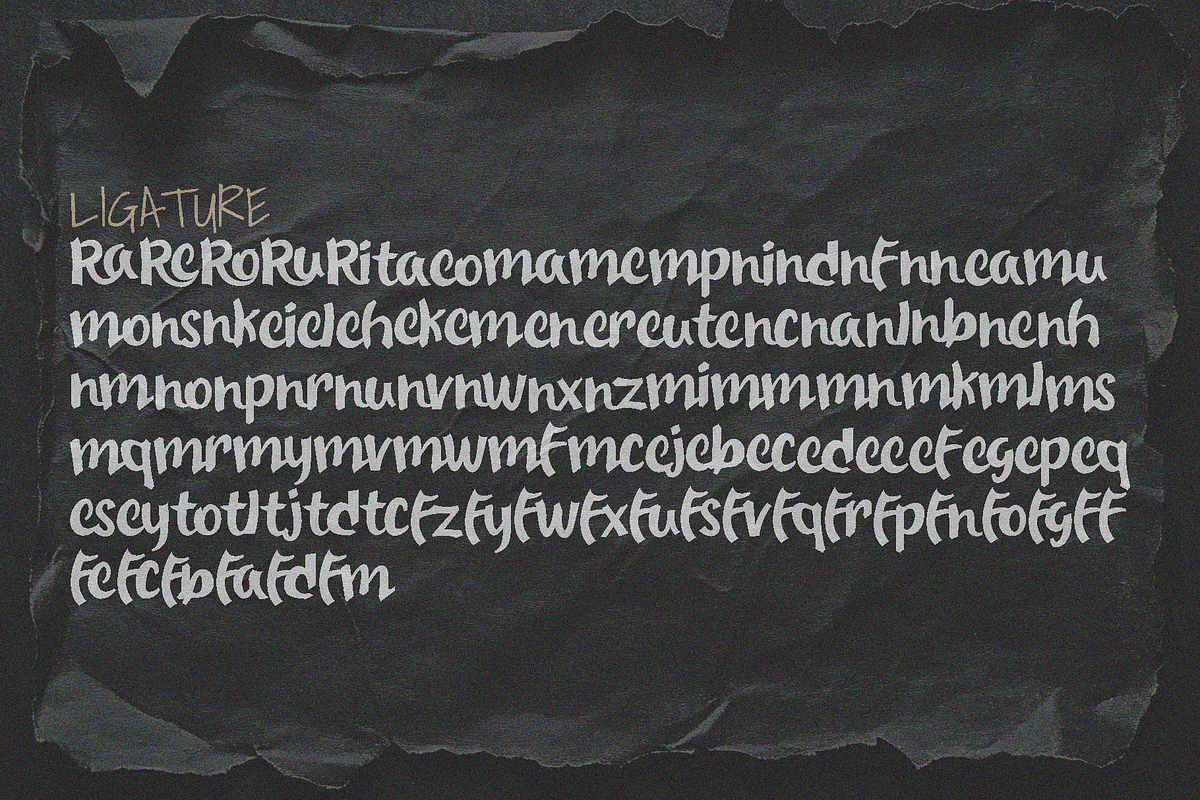 LIGATURE
RaReRoRuRitacomamempnindnfnneamu
monsnkeielchekemenereutencnanlnbnenh
nmnonpnrnunvnwnxnzmimmmnmkmlms
mqmrmymvmwmfmcejebecedeeefegepeq
eseytotltjtdtcfzfyfwfxfufsfvfqfrfpfnfofgff
fefcfbfafdfm